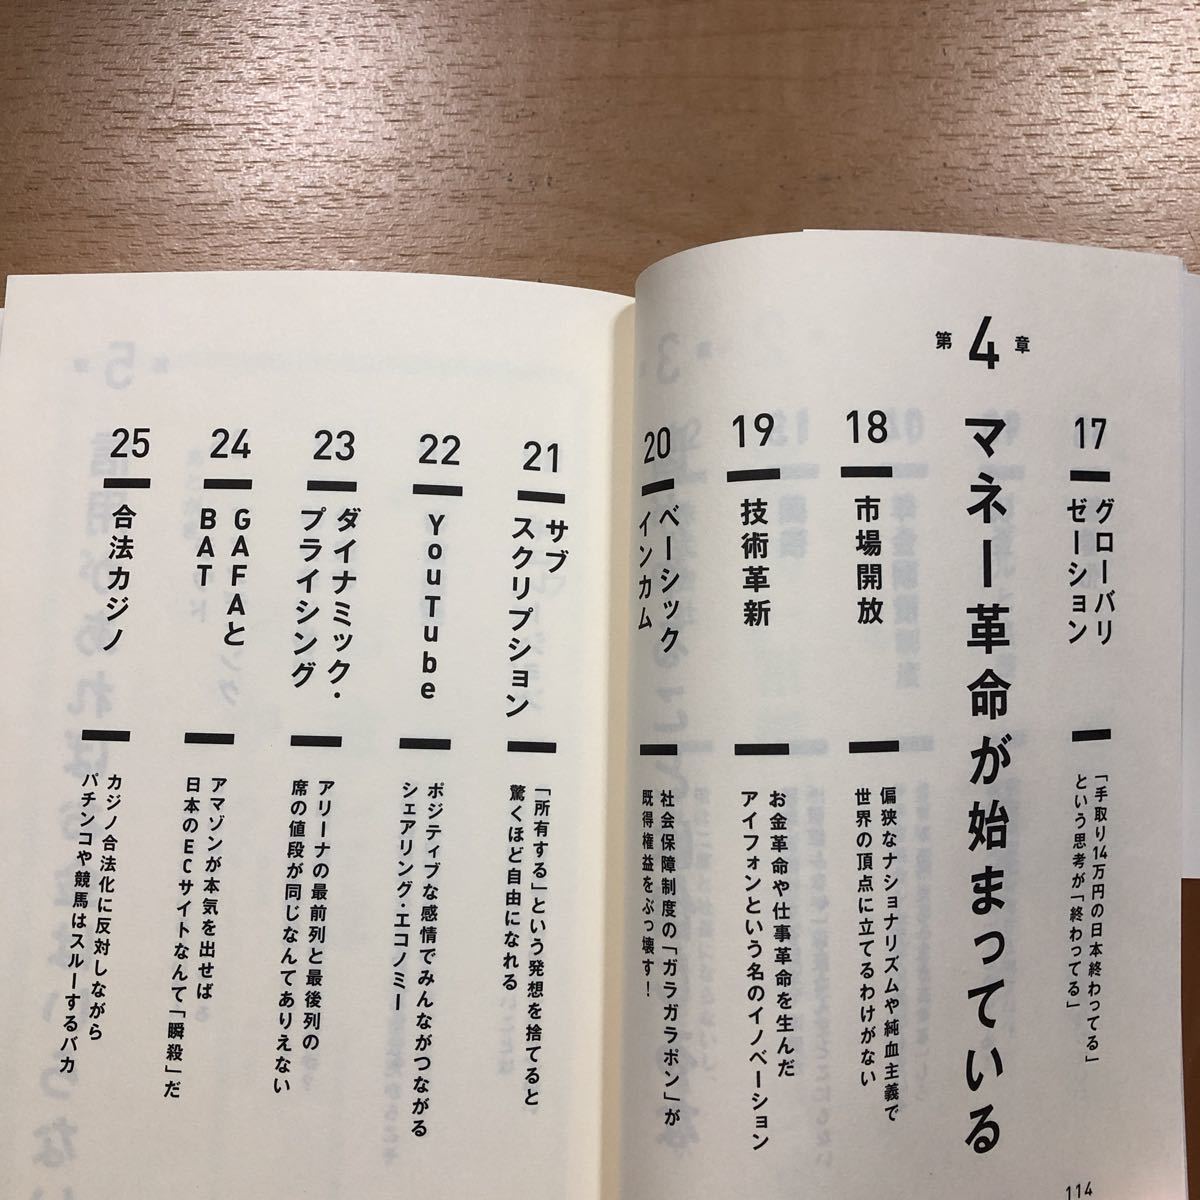 第4章
マネー革命が始まっている
17
グローバリ
ゼーション
「手取り14万円の日本終わってる」
という思考が「終わってる」
18
市場開放
偏狭なナショナリズムや純血主義で
世界の頂点に立てるわけがない
19
技術革新
お金革命や仕事革命を生んだ
アイフォンという名のイノベーション
20
ベーシック
インカム
社会保障制度の「ガラガラポン」が
既得権益をぶっ壊す！
114
21
サブ
スクリプション
「所有する」という発想を捨てると
驚くほど自由になれる
22
YouTube
ポジティブな感情でみんながつながる
シェアリング・エコノミー
23
ダイナミック・
プライシング
アリーナの最前列と最後列の
席の値段が同じなんてありえない
24
GAFAと
BAT
アマゾンが本気を出せば
日本のECサイトなんて「瞬殺」だ
25
合法カジノ
カジノ合法化に反対しながら
パチンコや競馬はスルーするバカ